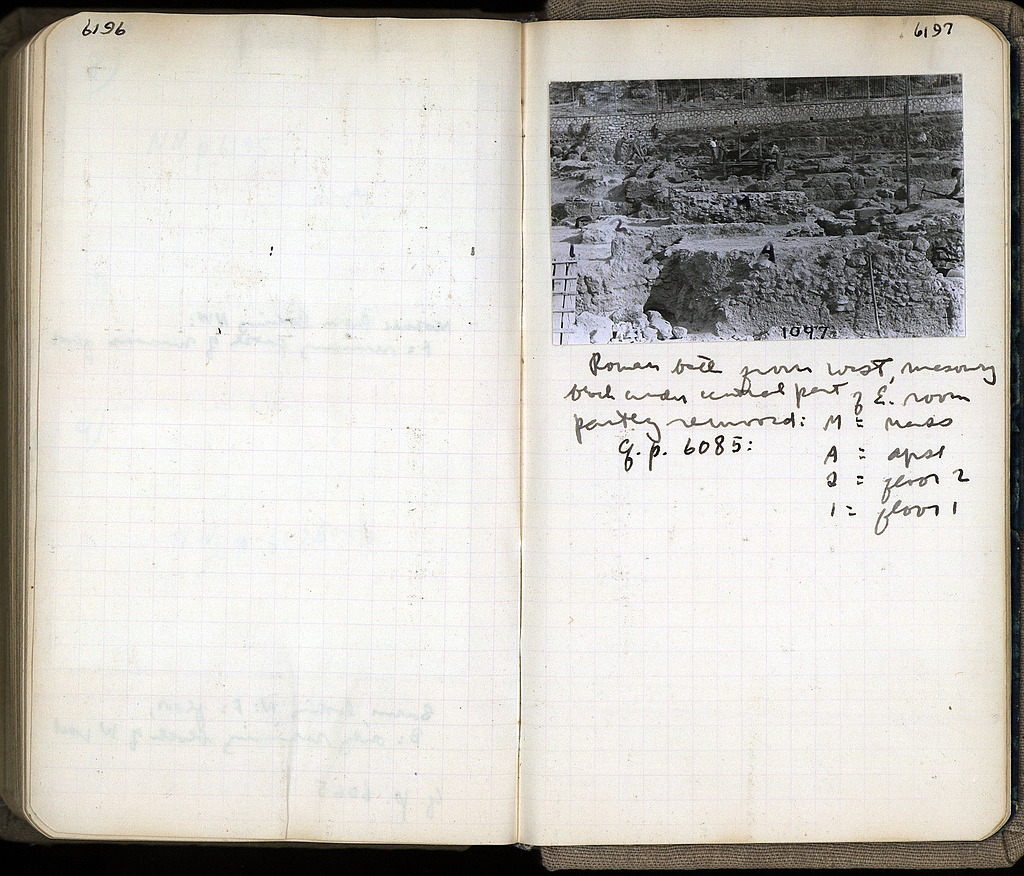 6196
6197
2
A
1097
Roman bath from west, masonry
block under central part of E. room
partly removed: M = mass
q.p. 6085: A = apse
2 = floor 2
1 = floor 1